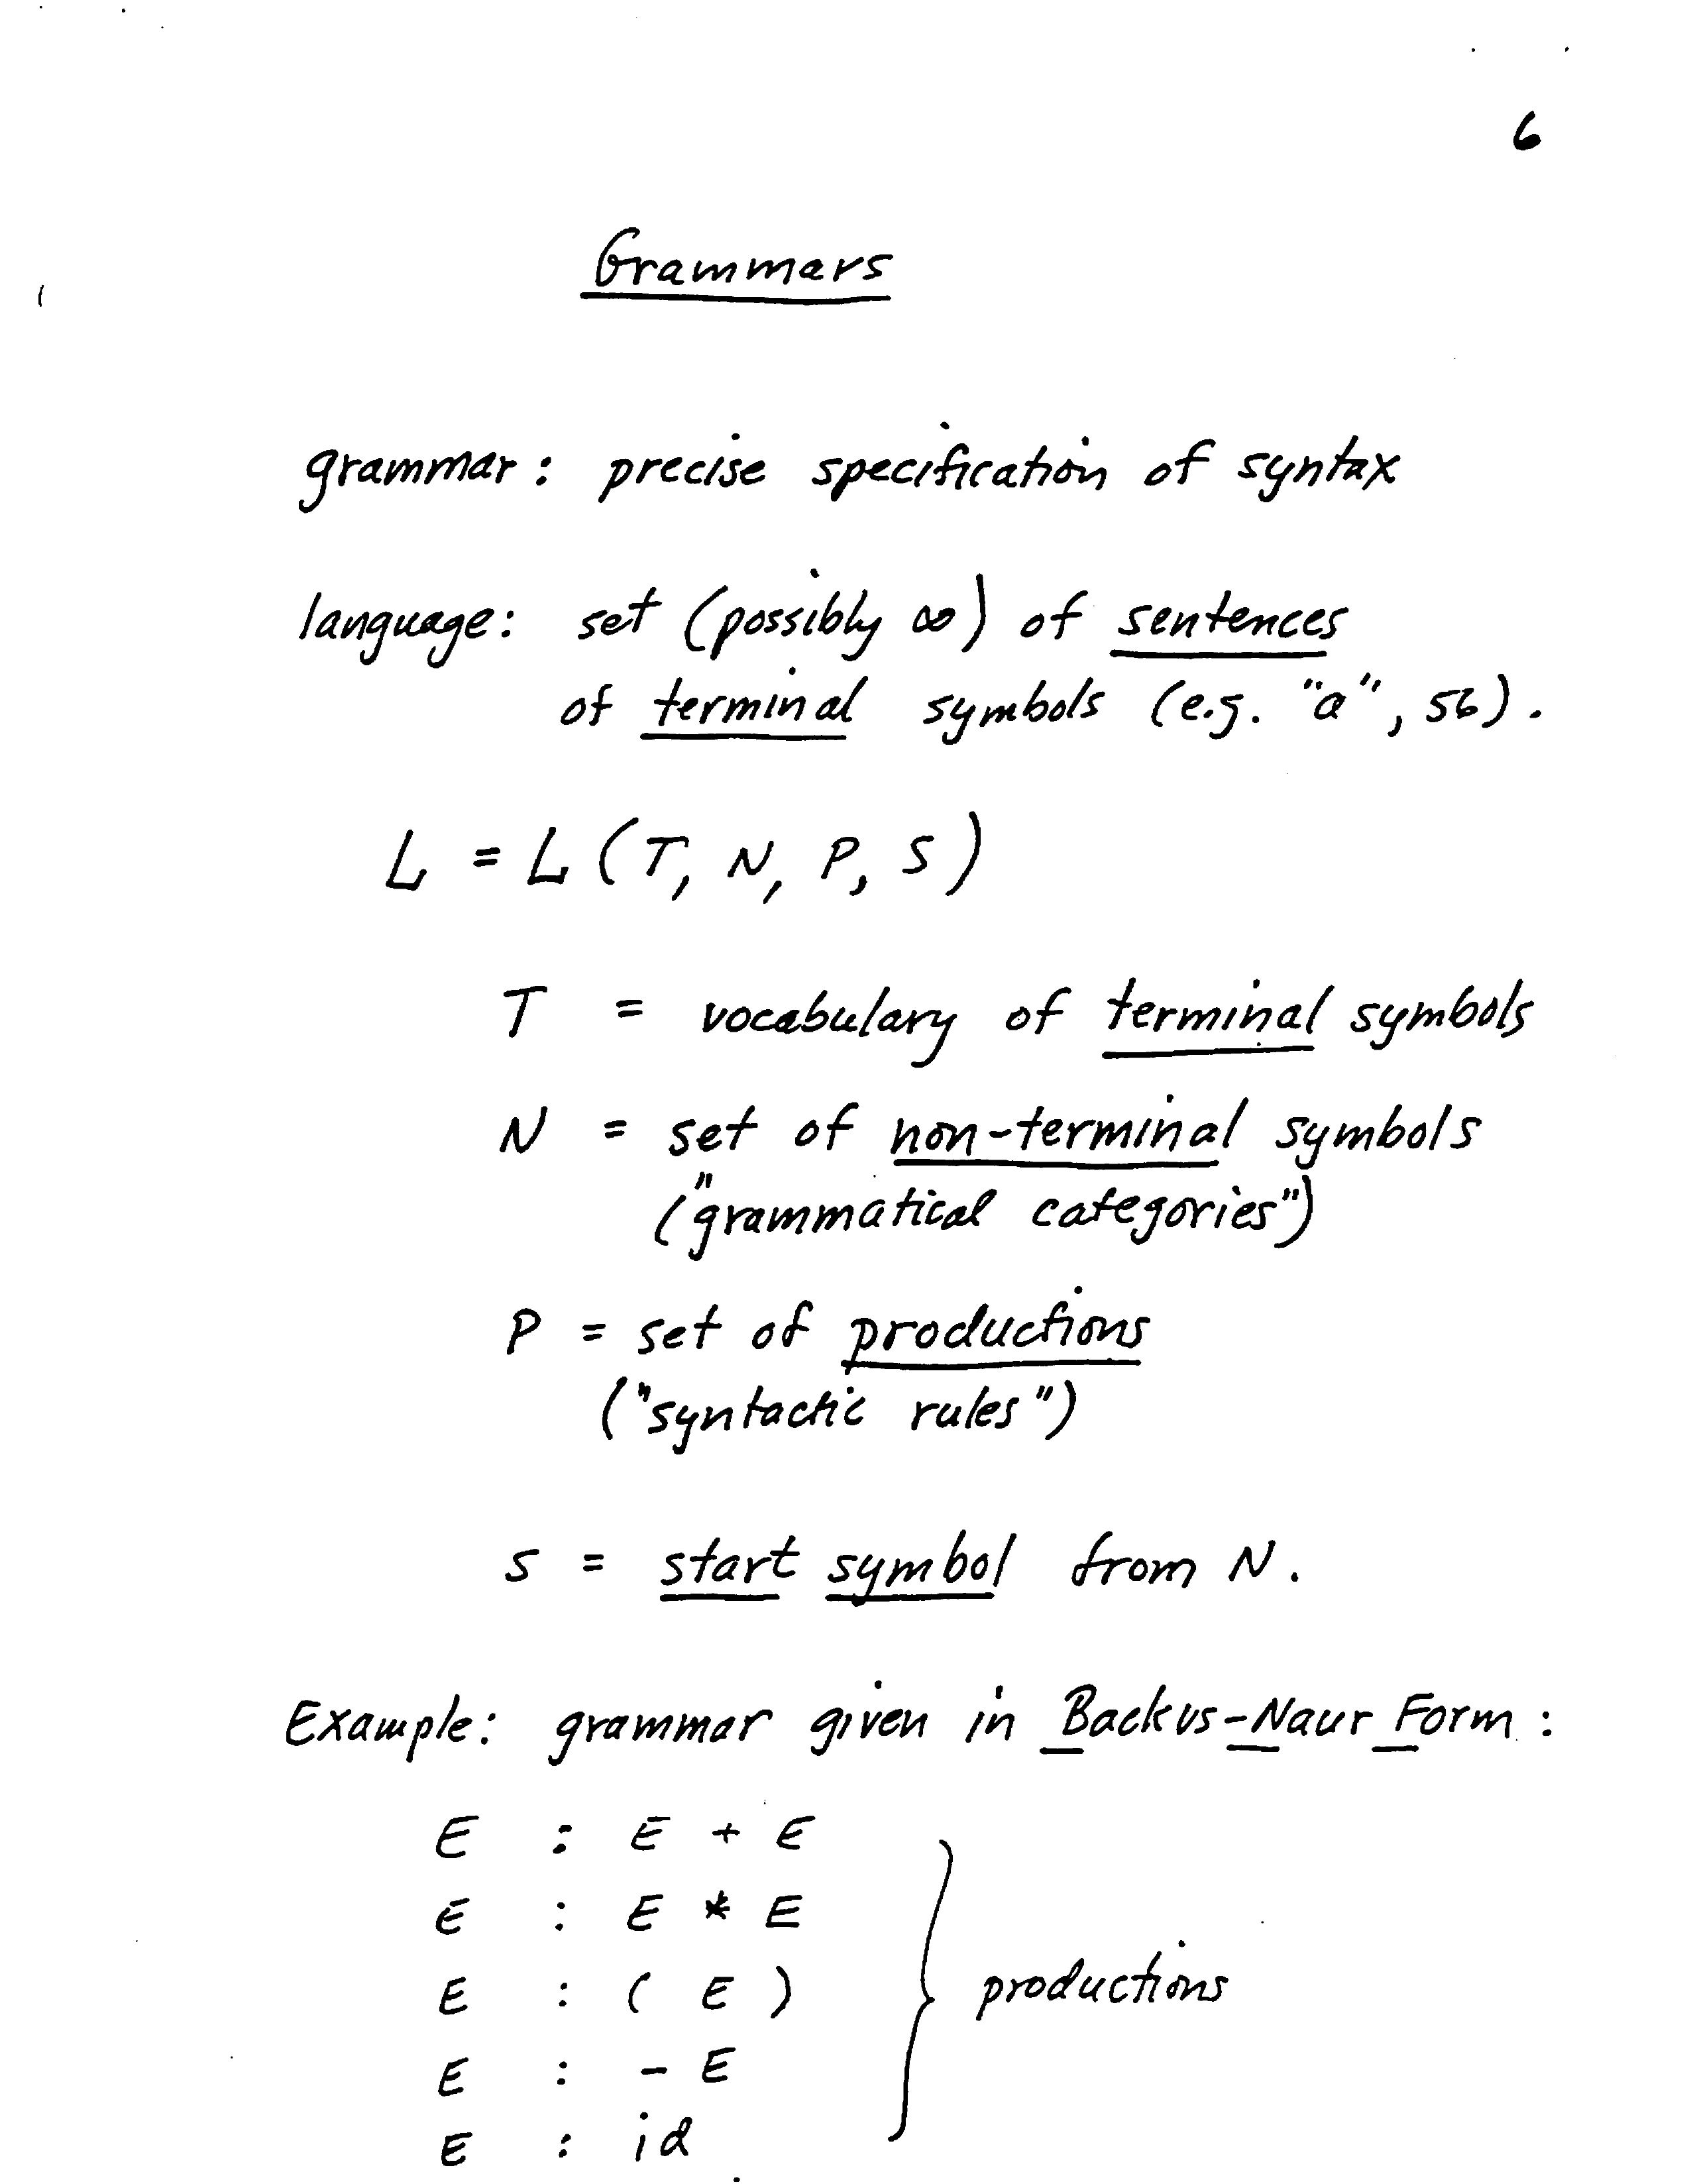 6
Grammars
grammar: precise specification of syntax
language: set (possibly ∞) of sentences
of terminal symbols (e.g. "a", 56).
L = L (T, N, P, S)
T = vocabulary of terminal symbols
N = set of non-terminal symbols
("grammatical categories")
P = set of productions
("syntactic rules")
S = start symbol from N.
Example: grammar given in Backus-Naur Form:
E : E + E
E : E * E
E : ( E )
productions
E : - E
E : id